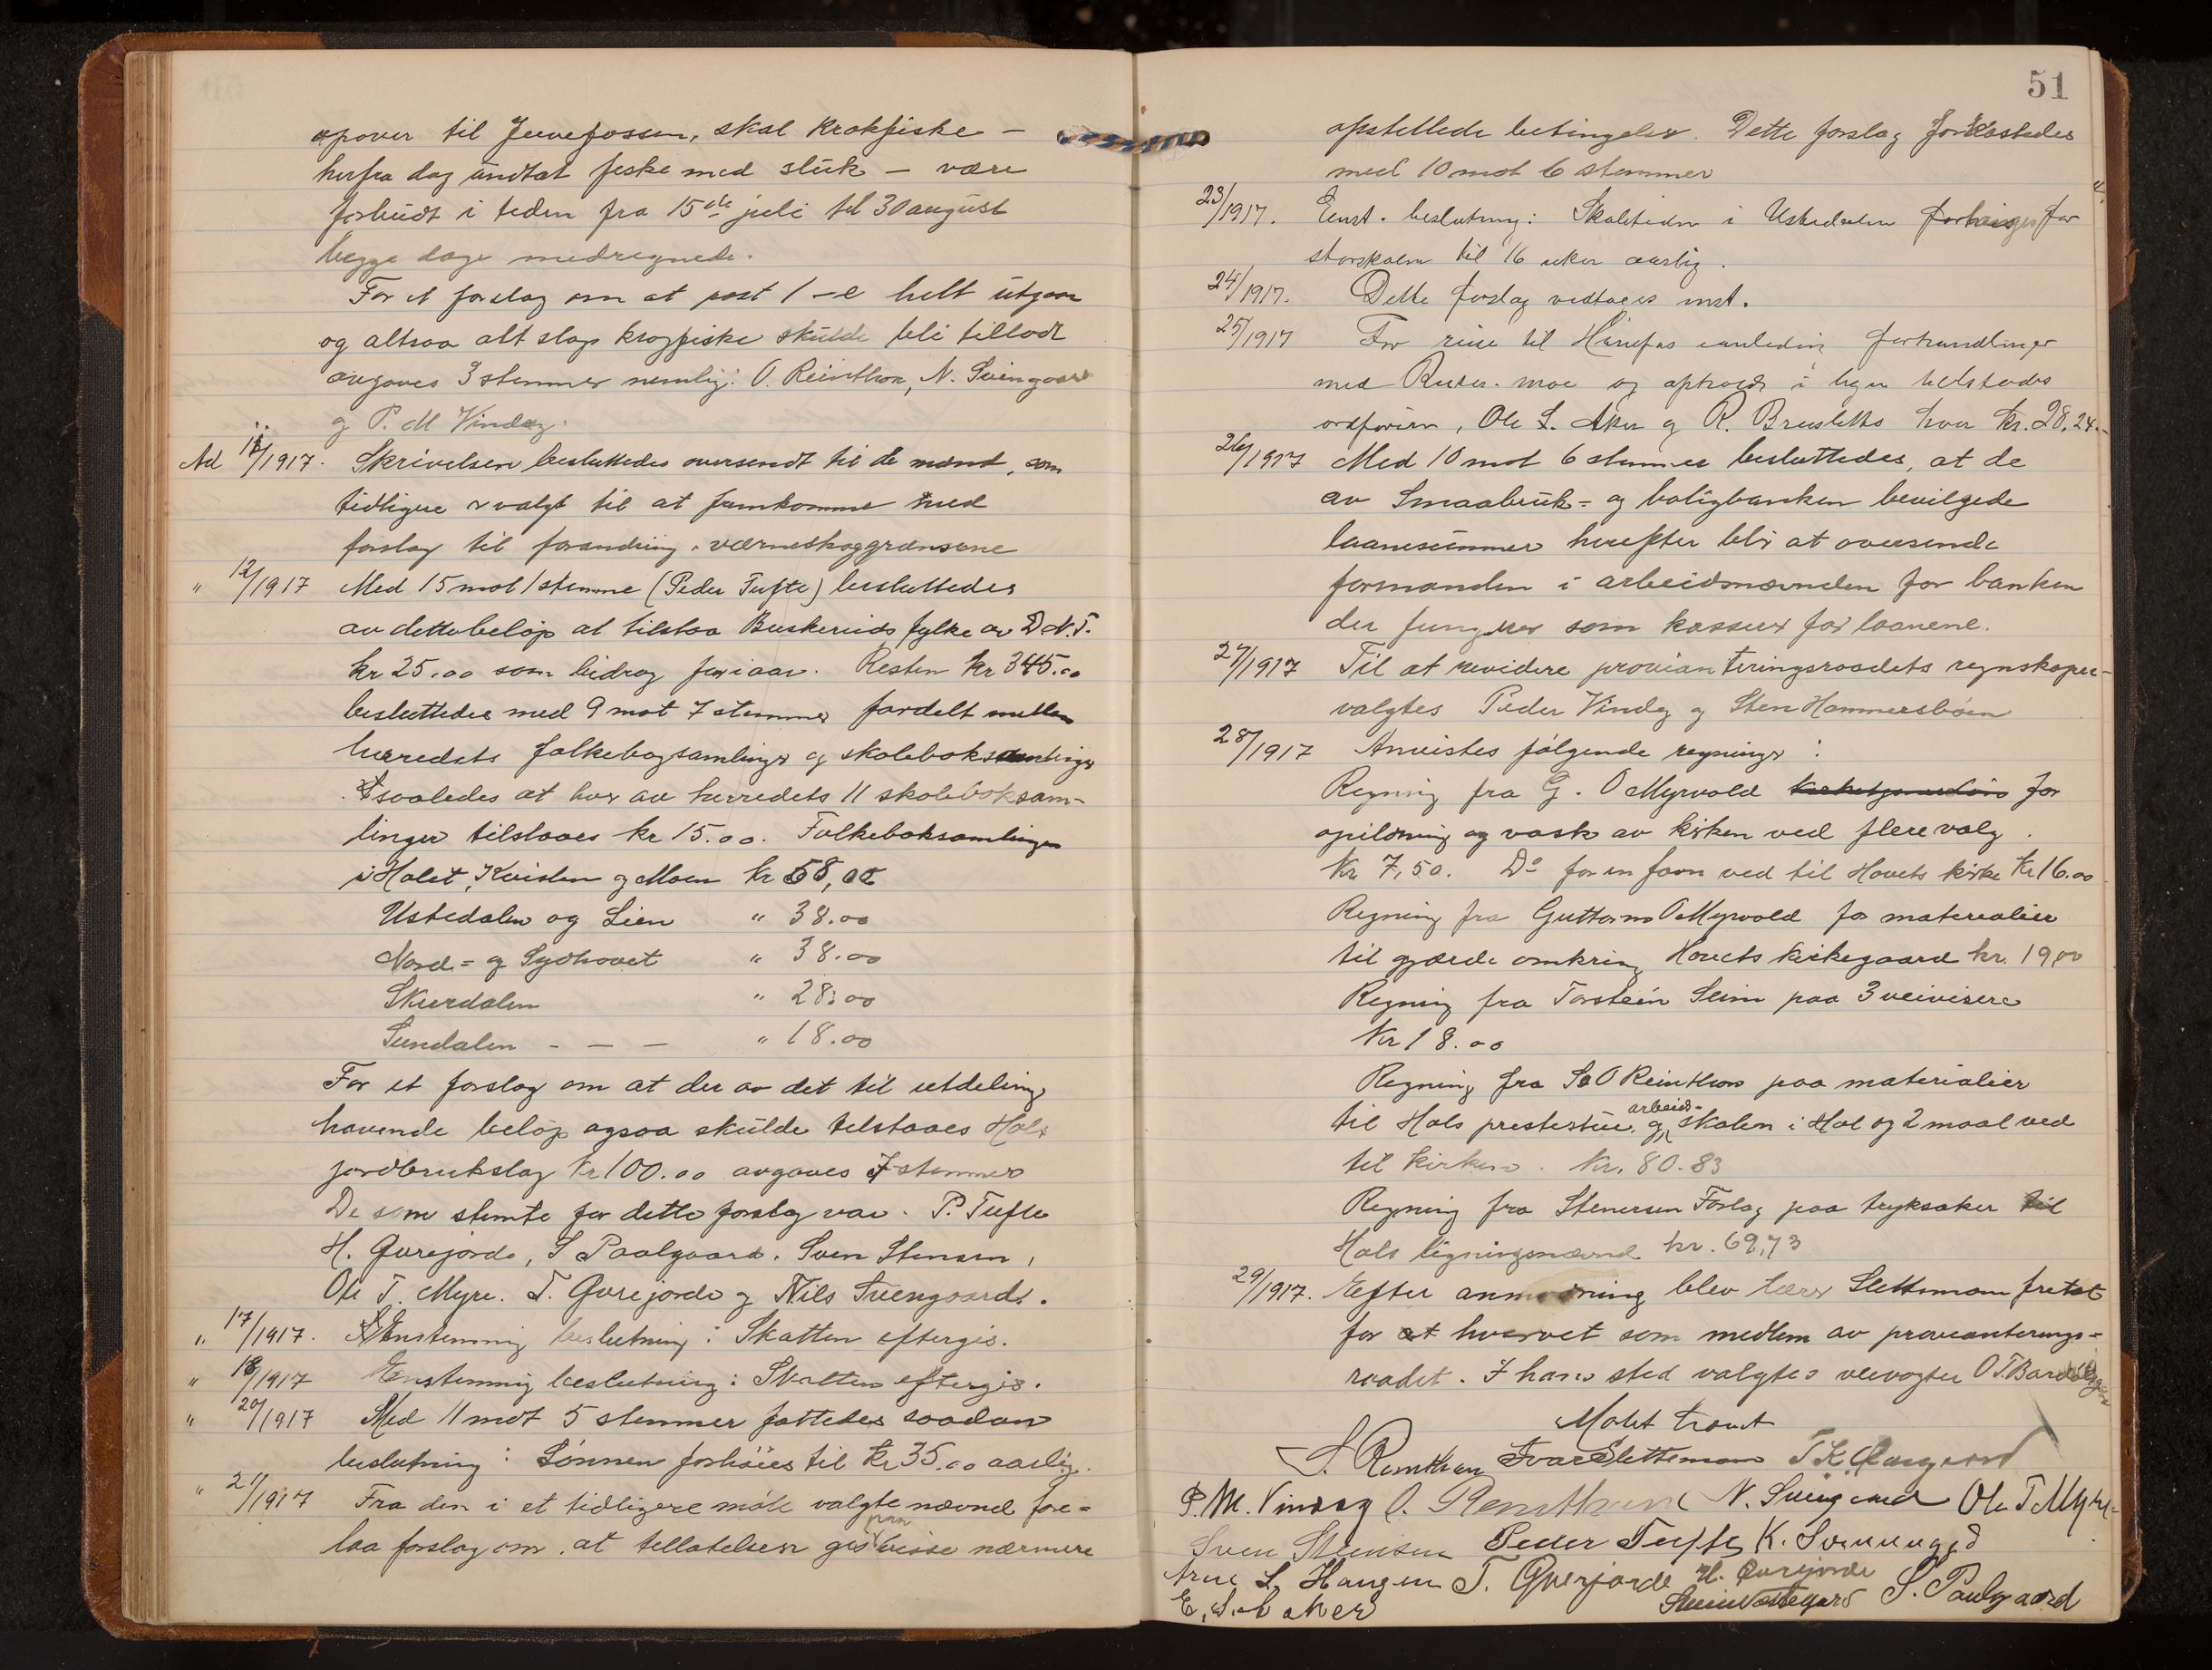 opover til Juvefossen, skal krokfiske –
herfra dog undtat fiske med sluk – være
forbudt i tiden fra 15de juli til 30 august
begge dage medregnede.
For et forslag om at post 1 – e helt utgaar
og altsaa alt slags krogfiske skulde bli tillodt
avgaves 3 stemmer nemlig: O. Reinthon, N. Sveingaard
og P. M Vindeg.
Ad 11/1917. Skrivelsen besluttedes oversendt til de mænd, som
tidligere er valgt til at fremkomme med
forslag til forandring i værneskoggrænsene
" 12/1917 Med 15 mot 1 stemme (Peder Tufte) besluttedes
av dette beløp at tilstaa Buskeruds fylke av D.N.T.
kr 25.00 som bidrag for iaar. Resten kr 345.00
besluttedes med 9 mot 7 stemmer fordelt mellem
herredets folkebogsamlinger og skoleboksamlinger
saaledes at hver av herredets 11 skoleboksam-
linger tilstaaes kr 15.00. Folkeboksamlingen
i Holet, Kvislen og Moen kr 58,00
Ustedalen og Lien " 38.00
Nord- og Sydhovet " 38.00
Skurdalen " 28.00
Sundalen - — — " 18.00
For et forslag om at der av det til utdeling
havende beløp ogsaa skulde tilstaaes Hols
jordbrukslag kr 100.00 avgaves 7 stemmer
De som stemte for dette forslag var. P. Tufte
H. Qvrejorde, S Paalgaard. Sven Stensen,
Ole T. Myre. T. Qvrejorde og Nils Sveengaard.
" 17/1917. Enstemmig beslutning: Skatten eftergis.
" 18/1917 Enstemmig beslutning: Skatten eftergis.
" 20/1917 Med 11 mot 5 stemmer fattedes saadan
beslutning: Lønnen forhøies til kr 35.00 aarlig.
" 21/1917 Fra den i et tidligere møte valgte nævnd fore-
laa forslag om at tillatelsen gis paa visse nærmere
51
opstillede betingelser. Dette forslag forkastedes
med 10 mot 6 stemmer
23/1917. Enst. beslutning: Skoletiden i Ustedalen forhøies for
storskolen til 16 uker aarlig.
24/1917. Dette forslag vedtages enst.
25/1917 For reise til Hønefos i anledning forhandlinger
med og ophold i byen tilstodes
ordføreren, Ole L. Aker og R. Brusletto hver kr. 28,24.–
26/1917 Med 10 mot 6 stemmer besluttedes, at de
av Smaabruk- og boligbanken bevilgede
laanesummer herefter blir at oversende
formanden i arbeidsnævnden for banken
der fungerer som kasserer for laanene.
27/1917 Til at revidere provianteringsraadets regnskaper
valgtes Peder Vindeg og Sten Hammersbøen
28/1917 Anvistes følgende regninger:
Regning fra G. O Myrvold for
opildning og vask av kirken ved flere valg.
Kr 7,50. Do for en favn ved til Hovets kirke kr 16.00
Regning fra Guttorm O Myrvold for materialier
til gjærde omkring Hovets kirkegaard kr. 19,00
Regning fra Torstein Seim paa 3 veivisere
Kr 18.00
Regning fra S O Reinthon paa materialier
til Hols prestestue, og arbeids-skolen i Hol og 2 maal ved
til kirken. Kr. 80.83
Regning fra Stenersen Forlag paa tryksaker til
Hols ligningsnævnd kr. 69,73
29/1917. Efter anmodning blev lærer Slettemoen fritat
for at hvervet som medlem av provianterings-
raadet. I hans sted valgtes veivogter O T. Bard
Møtet hævet
S. Reinthon Ivar Slettemoen T K
P. M. Vindeg O. Reinthon N. Sveingaard Ole T Myre
Sven Stensen Peder Tufte K. Svenungsd
Arne L. Haugen T. Qverjorde H. Qvrejorde
E. S. Aker Svein Nestegard S. Paulgaard